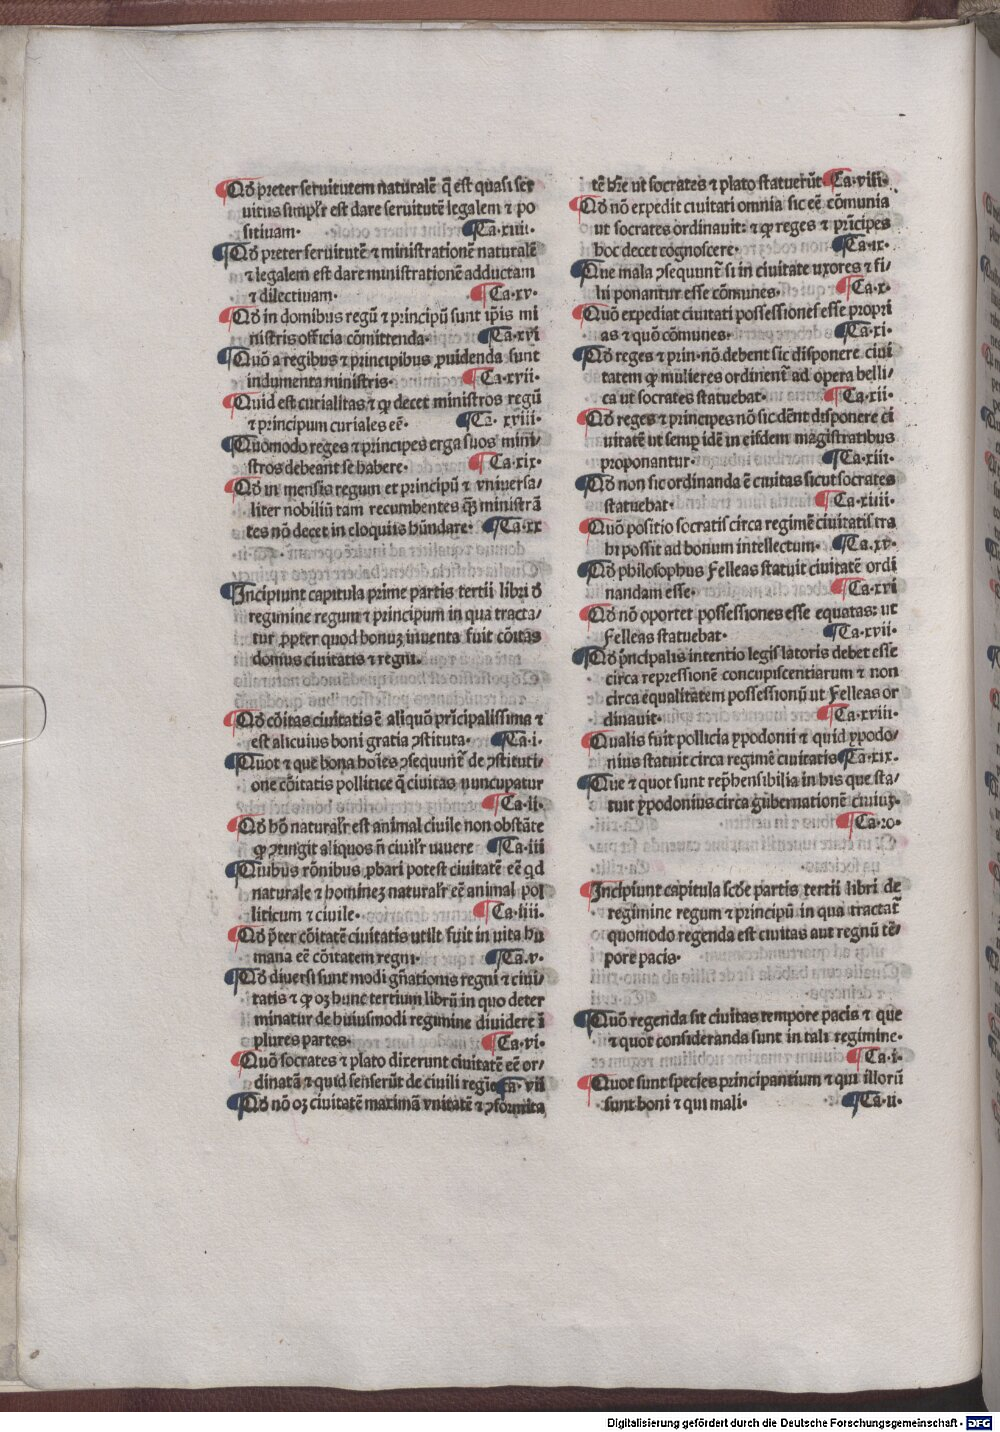 Qð preter seruitutem naturalē q̄ est quasi ser
uitus simplr̄ est dare seruitutē legalem ⁊ po
sitiuam. Ca.xiiii.
Qð preter seruitutē ⁊ ministrationē naturalē
⁊ legalem est dare ministrationē adductam
⁊ dilectiuam. Ca.xv.
Qð in domibus regū ⁊ principū sunt ip̄is mi
nistris officia cōmittenda. Ca.xvi
Quō a regibus ⁊ principibus ꝓuidenda sunt
indumenta ministris. Ca.xvii.
Quid est curialitas ⁊ ꝙ decet ministros regū
⁊ principum curiales eē. Ca.xviii.
Quomodo reges ⁊ principes erga suos mini/
stros debeant se habere. Ca.xix.
Qð in mensis regum et principū ⁊ vniuersa/
liter nobiliū tam recumbentes q̄ꝫ ministrā
tes nō decet in eloquiis hūndare. Ca.xx
Incipiunt capitula prime partis tertii libri ð
regimine regum ⁊ principum in qua tracta/
tur ꝓpter quod bonuꝫ inuenta fuit cōitas
domus ciuitatis ⁊ regni.
Qð cōitas ciuitatis ē aliquō prīcipalissima ⁊
est alicuius boni gratia ꝯstituta. Ca.i.
Quot ⁊ que bona hoīes ꝯsequunt̄ de ꝯstituti/
one cōitatis pollitice q̄ ciuitas nuncupatur
Ca.ii.
Qð hō naturalr̄ est animal ciuile non obstāte
ꝙ ꝯtingit aliquos n̄ ciuilr̄ uiuere Ca.iii
Quibus rōnibus ꝓbari potest ciuitatē eē qd
naturale ⁊ hominez naturalr̄ eē animal pol
liticum ⁊ ciuile. Ca.iiii.
Qð p̄ter cōitatē ciuitatis utile fuit in uita hu
mana eē cōitatem regni. Ca.v.
Qð diuersi sunt modi gn̄ationis regni ⁊ ciui/
tatis ⁊ ꝙ oꝫ hunc tertium librū in quo deter
minatur de huiusmodi regimine diuidere ī
plures partes. Ca.vi.
Quō socrates ⁊ plato dixerunt ciuitatē eē or/
dinatā ⁊ quid senserūt de ciuili regīe Ca.vii
Qð nō oꝫ ciuitatē maximā vnitatē ⁊ ꝯformita
tē hr̄e ut socrates ⁊ plato statuerūt Ca.viii.
Qð nō expedit ciuitati omnia sic eē cōmunia
ut socrates ordinauit: ⁊ ꝙ reges ⁊ prīcipes
hoc decet cognoscere. Ca.ix.
Que mala ꝯsequunt̄ si in ciuitate uxores ⁊ fi/
lii ponantur esse cōmunes. Ca.x.
Quō expediat ciuitati possessiones esse propri
as ⁊ quō cōmunes. Ca.xi.
Qð reges ⁊ prin. nō debent sic disponere ciui
tatem ꝙ mulieres ordinent̄ ad opera belli/
ca ut socrates statuebat. Ca.xii.
Qð reges ⁊ principes nō sic dēnt disponere ci
uitatē ut semp idē in eisdem magistratibus
proponantur. Ca.xiii.
Qð non sic ordinanda ē ciuitas sicut socrates
statuebat. Ca.xiiii.
Quō positio socratis circa regimē ciuitatis tra
hi possit ad bonum intellectum. Ca.xv.
Qð philosophus Felleas statuit ciuitatē ordi
nandam esse. Ca.xvi
Qð nō oportet possessiones esse equatas: ut
Felleas statuebat. Ca.xvii.
Qð p̄ncipalis intentio legis latoris debet esse
circa repressionē concupiscentiarum ⁊ non
circa equalitatem possessionū ut Felleas or
dinauit. Ca.xviii.
Qualis fuit pollicia ypodonii ⁊ quid ypodo/
nius statuit circa regimē ciuitatis Ca.xix.
Que ⁊ quot sunt rep̄hensibilia in his que sta/
tuit ypodonius circa gubernationē ciuiuꝫ.
Ca.xo.
Incipiunt capitula scðe partis tertii libri de
regimine regum ⁊ principū in qua tractat̄
quomodo regenda est ciuitas aut regnū tē/
pore pacis.
Quō regenda sit ciuitas tempore pacis ⁊ que
⁊ quot consideranda sunt in tali regimine.
Ca.i.
Quot sunt species principantium ⁊ qui illorū
sunt boni ⁊ qui mali. Ca.ii.
Digitalisierung gefördert durch die Deutsche Forschungsgemeinschaft - DFG